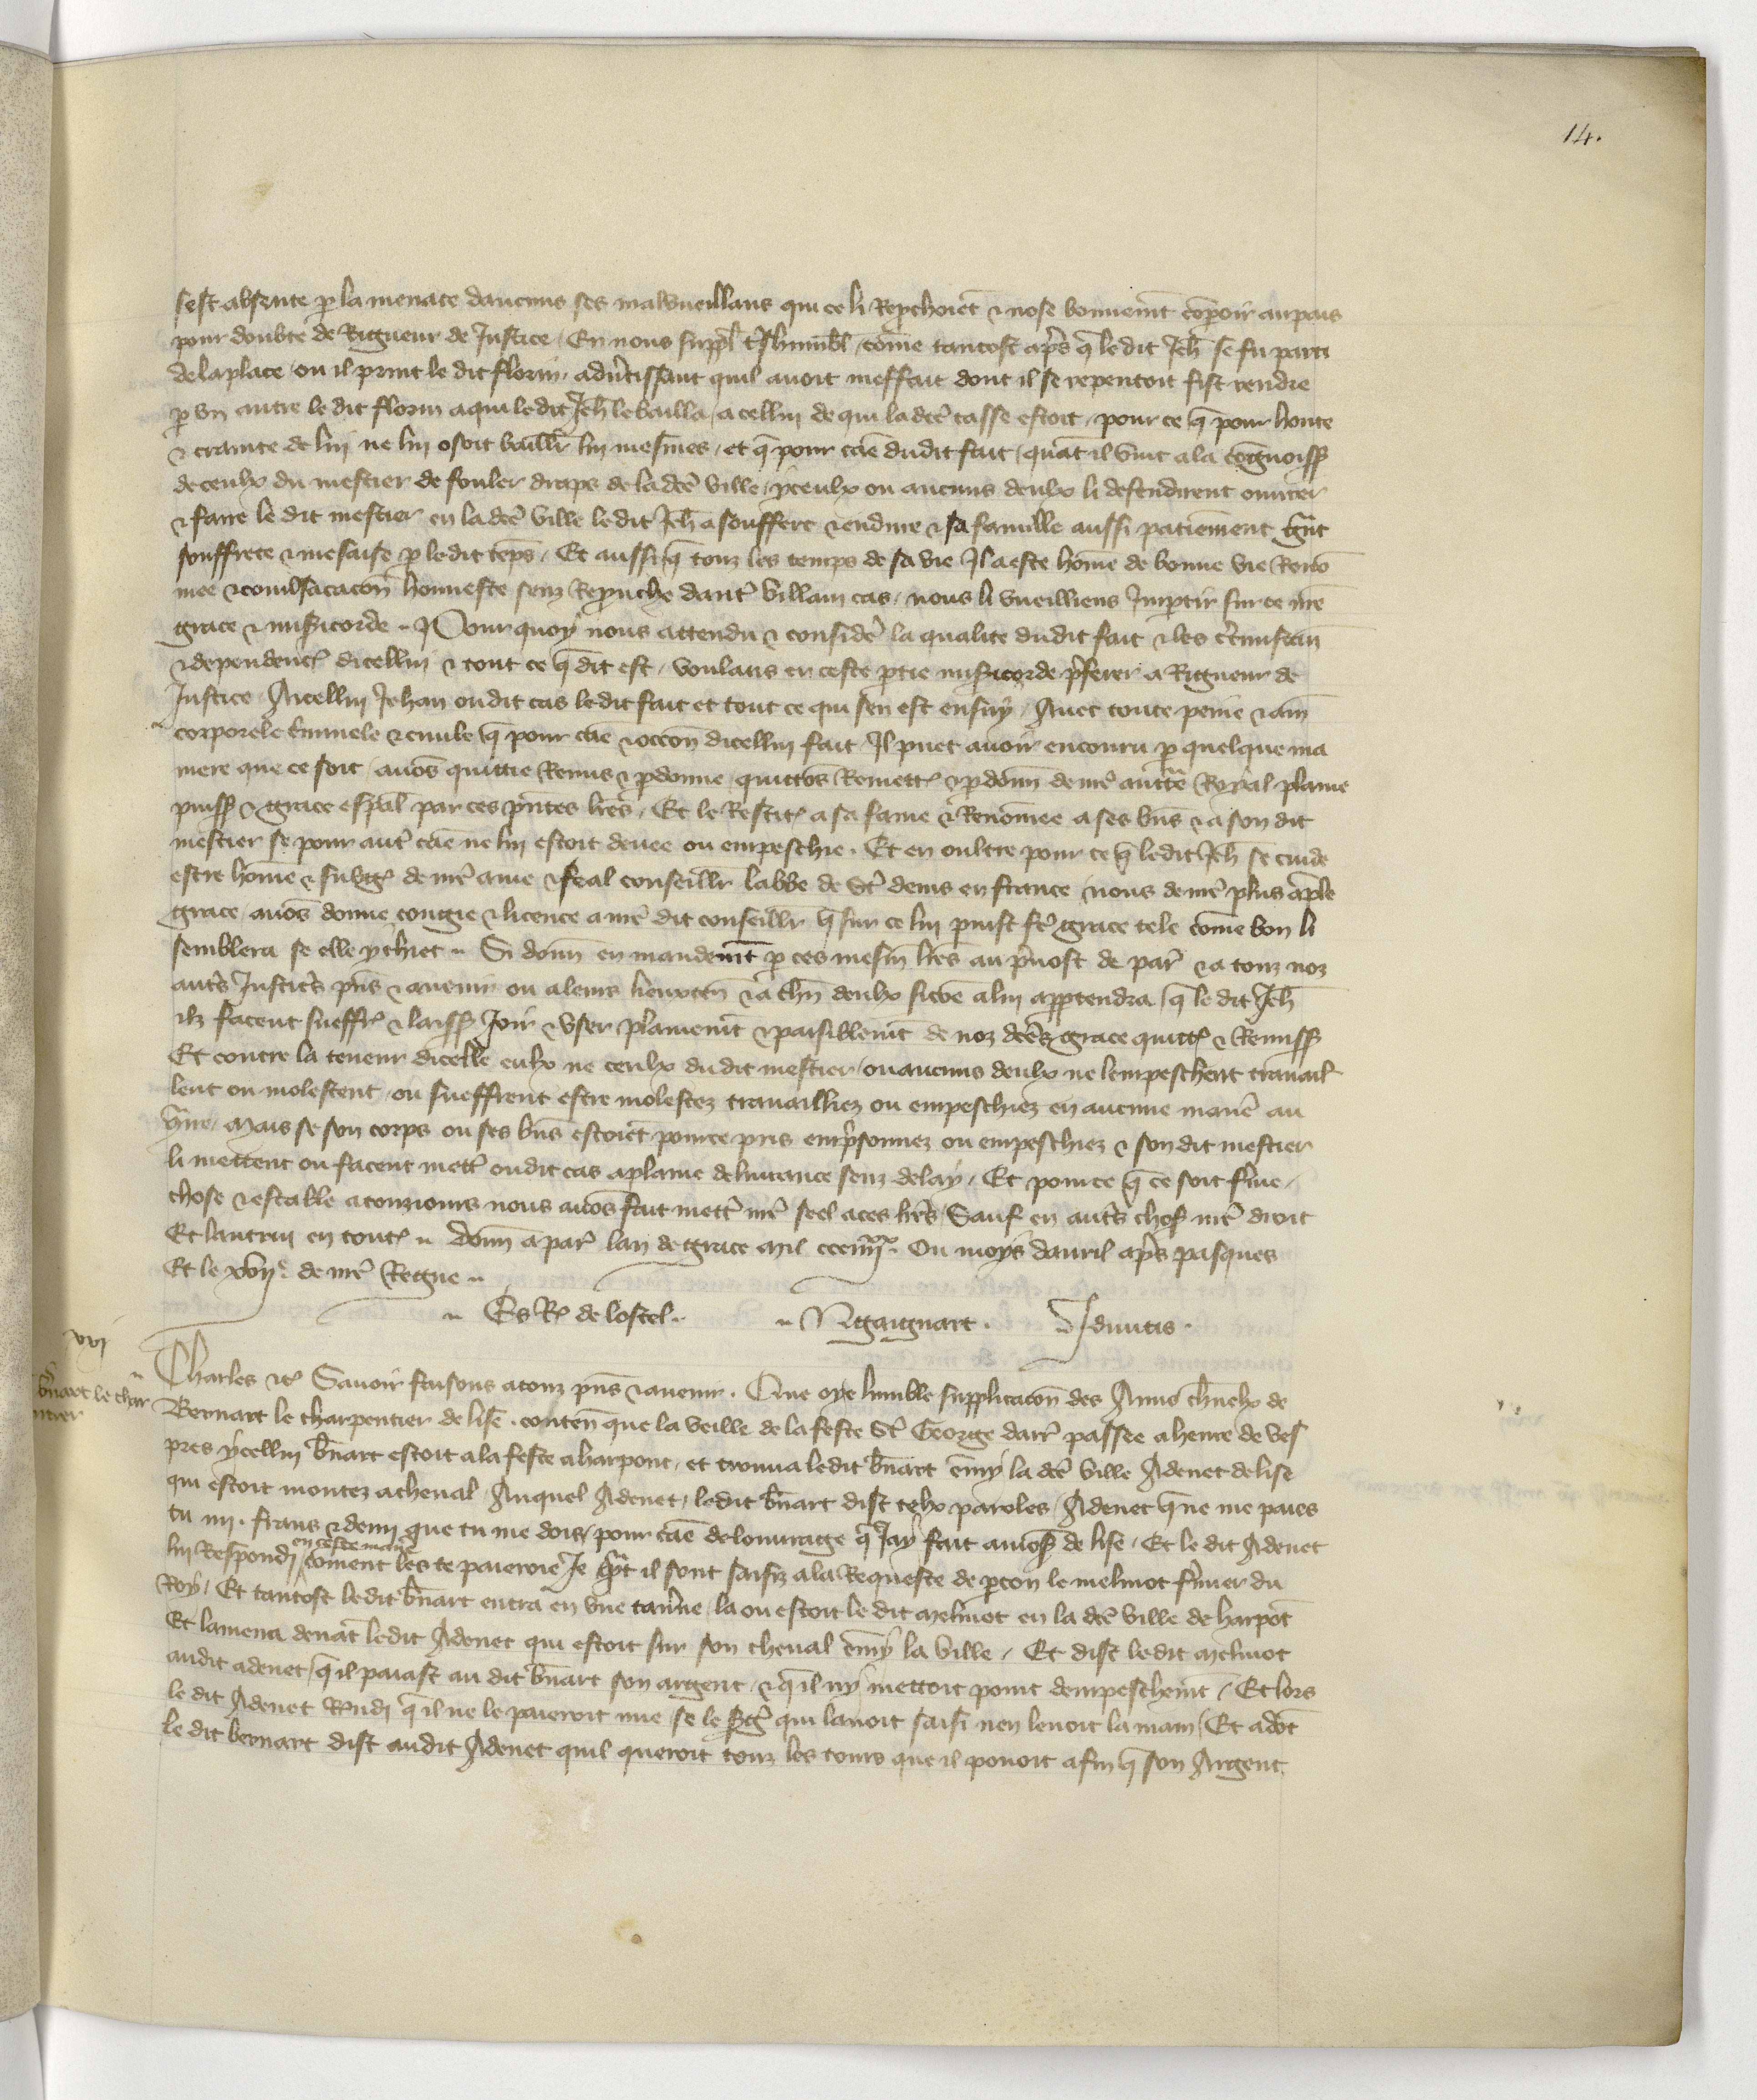 14.
sest absente p la menace daucuns ses malvueillans qui ce li Repchoiet & nose bonnemt coparoir au pais
pour doubte de Rigueur de Justice / En nous suppl treshumbl / come tantost apres q le dit Jeh se fu parti
de la place / ou il print le dit florin / advertissant quil avoit meffait dont il se repentoit fist rendre
p un autre le dit florin a qui le dit Jeh le bailla / a cellui de qui la dce tasse estoit / pour ce q pour honte
& crainte de lui ne lui osoit baillr lui mesmes / et q pour cae dudit fait / quat il vint a la congnoiss
de ceulx du mestier de fouler draps de la dce ville / yceulx ou aucuns deulx li deffendirent ouvrer
& faire le dit mestier en la dce ville le dit Jeh a souffert & endure & sa famille aussi patiemment grant
souffrete & mesaise p le dit teps / Et aussi q touz les temps de sa vie Il a este home de bonne vie Reno
mee & conversacacon honneste senz Reprouche daut villain cas / nous li vueilliens Impartir sur ce nre
grace & misicorde .. Pour quoy nous attendu & consider la qualite dudit fait & les circunstan
& dependenc dicellui & tout ce q dit est / voulans en ceste ptie misicorde preferer a Rigueur de
Justice / Aicellui Jehan ou dit cas le dit fait et tout ce qui sen est ensuy / Avec toute peine & am
corporele criminele & civile q pour cae & occon dicellui fait Il puet avoir encouru p quelque ma
niere que ce soit / avos quittie Remis & pdonne / quittos Remett & pdonn de nre auctte Royal plaine
puiss & grace espal par ces pntes lres / Et le Restit a sa fame & Renomee a ses bns & a son dit
mestier se pour aut cae ne lui estoit devee ou empeschie . Et en oultre pour ce q le dit Jeh se cuide
estre home & subg de nre ame & feal conseillr labbe de St denis en france / nous de nre plus ample
grace / avos donne congie & licence a nre dit conseillr q sur ce lui puist fe grace tele come bon li
semblera se elle y chiet .. Si donn en mandemt p ces mesm lres au prevost de par & a touz noz
auts Justiciers pns & avenir ou a leurs lieuxten & a chun deulx sicoe a lui apptendra / q le dit Jeh
ilz facent sueffr & laiss Joir & user plainemt & paisiblemt de noz dces grace quitt & Remiss
Et contre la teneur dicelle eulx ne ceulx dudit mestier / ou aucuns deulx ne lempeschent travail
lent ou molestent / ou sueffrent estre molestez travailliez ou empeschiez en aucune maniere au
/ Mais se son corps ou ses bns estoiet pour ce pris emprisonnez ou empeschiez & son dit mestier
li mettent ou facent mett ou dit cas a plaine delivrance senz delay / Et pour ce q ce soit ferme /
chose & estable a touzjours nous avos fait mett nre seel a ces lres / Sauf en auts chos nre droit
Et lautrui en tout .. Donn a par lan de grace Mil ccciiiixx . Ou moys davril apres pasques
Et le xvije de nre Regne ..
.. Es R de lostel .. .. N gaignart . .. J divitis .
xvj
bnart le char
ntier
Charles &c Savoir faisons a touz pns & avenir . Que oye humble supplicacon des Amis charnelx de
Bernart le charpentier de lise . conten que la veille de la feste St George darr passee a heure de ves
pres ycellui bnart estoit a la feste a harpont / et trouva le dit bnart emy la dce ville Adenet de lise
qui estoit montez a cheval / Auquel Adenet / le dit bnart dist telx paroles / Adenet q ne me paies
tu iiij . frans & demi que tu me dois / pour cae de louvrage q Jay fait a de lise / Et le dit Adenet
lui Respondi en ceste maie / Coment les te paieroie Je il sont saisiz a la Requeste de pcon le melmot fermier du
Roy / Et tantost le dit bnart entra en une taverne / la ou estoit le dit Melmot en la dce ville de harpot
Et lamena devat le dit Adenet qui estoit sur son cheval emy la ville / Et dist le dit Melmot
audit adenet / q il paiast au dit bnart son argent / & q il ny mettoit point dempeschemt / Et lors
le dit Adenet Rndi q il ne le paieroit mie / se le sgt qui lavoit saisi nen levoit la main / Et adot
le dit bernart dist audit Adenet quil queroit touz les tours que il povoit afin q son Argent